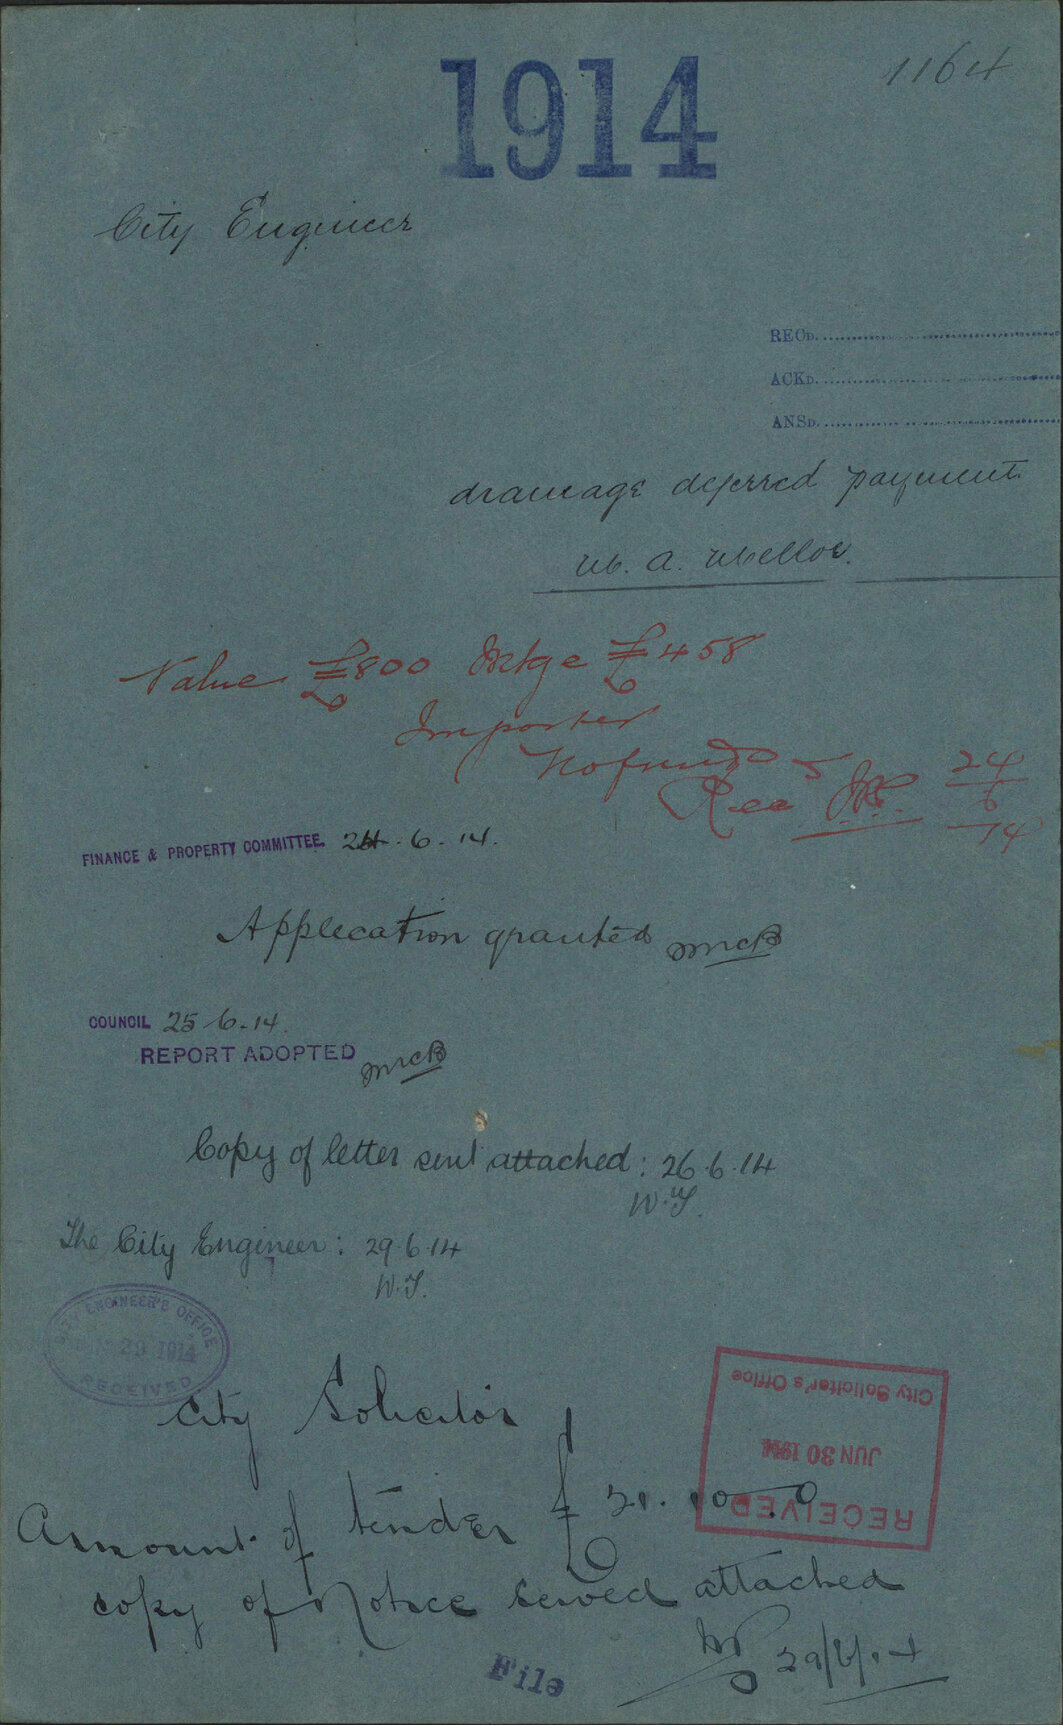 1914
1164
City Engineer
RECD.
ACKD.
ANSD.
drainage deferred payment
A. Mellor.
Value £800 Mtge £458
Importer
No funds
Rec 24/6/14
FINANCE & PROPERTY COMMITTEE. 24.6.14.
Application granted McB
COUNCIL 25-6-14.
REPORT ADOPTED McB
Copy of letter sent attached: 26.6.14
W.T.
The City Engineer: 29.6.14
W.T.
CITY ENGINEER'S OFFICE
29 1914
RECEIVED
City Solicitor
City Solicitor's Office
JUN 30 1914
RECEIVED
Amount of tender £31.10.0
copy of Notice served attached
29/6/14
File